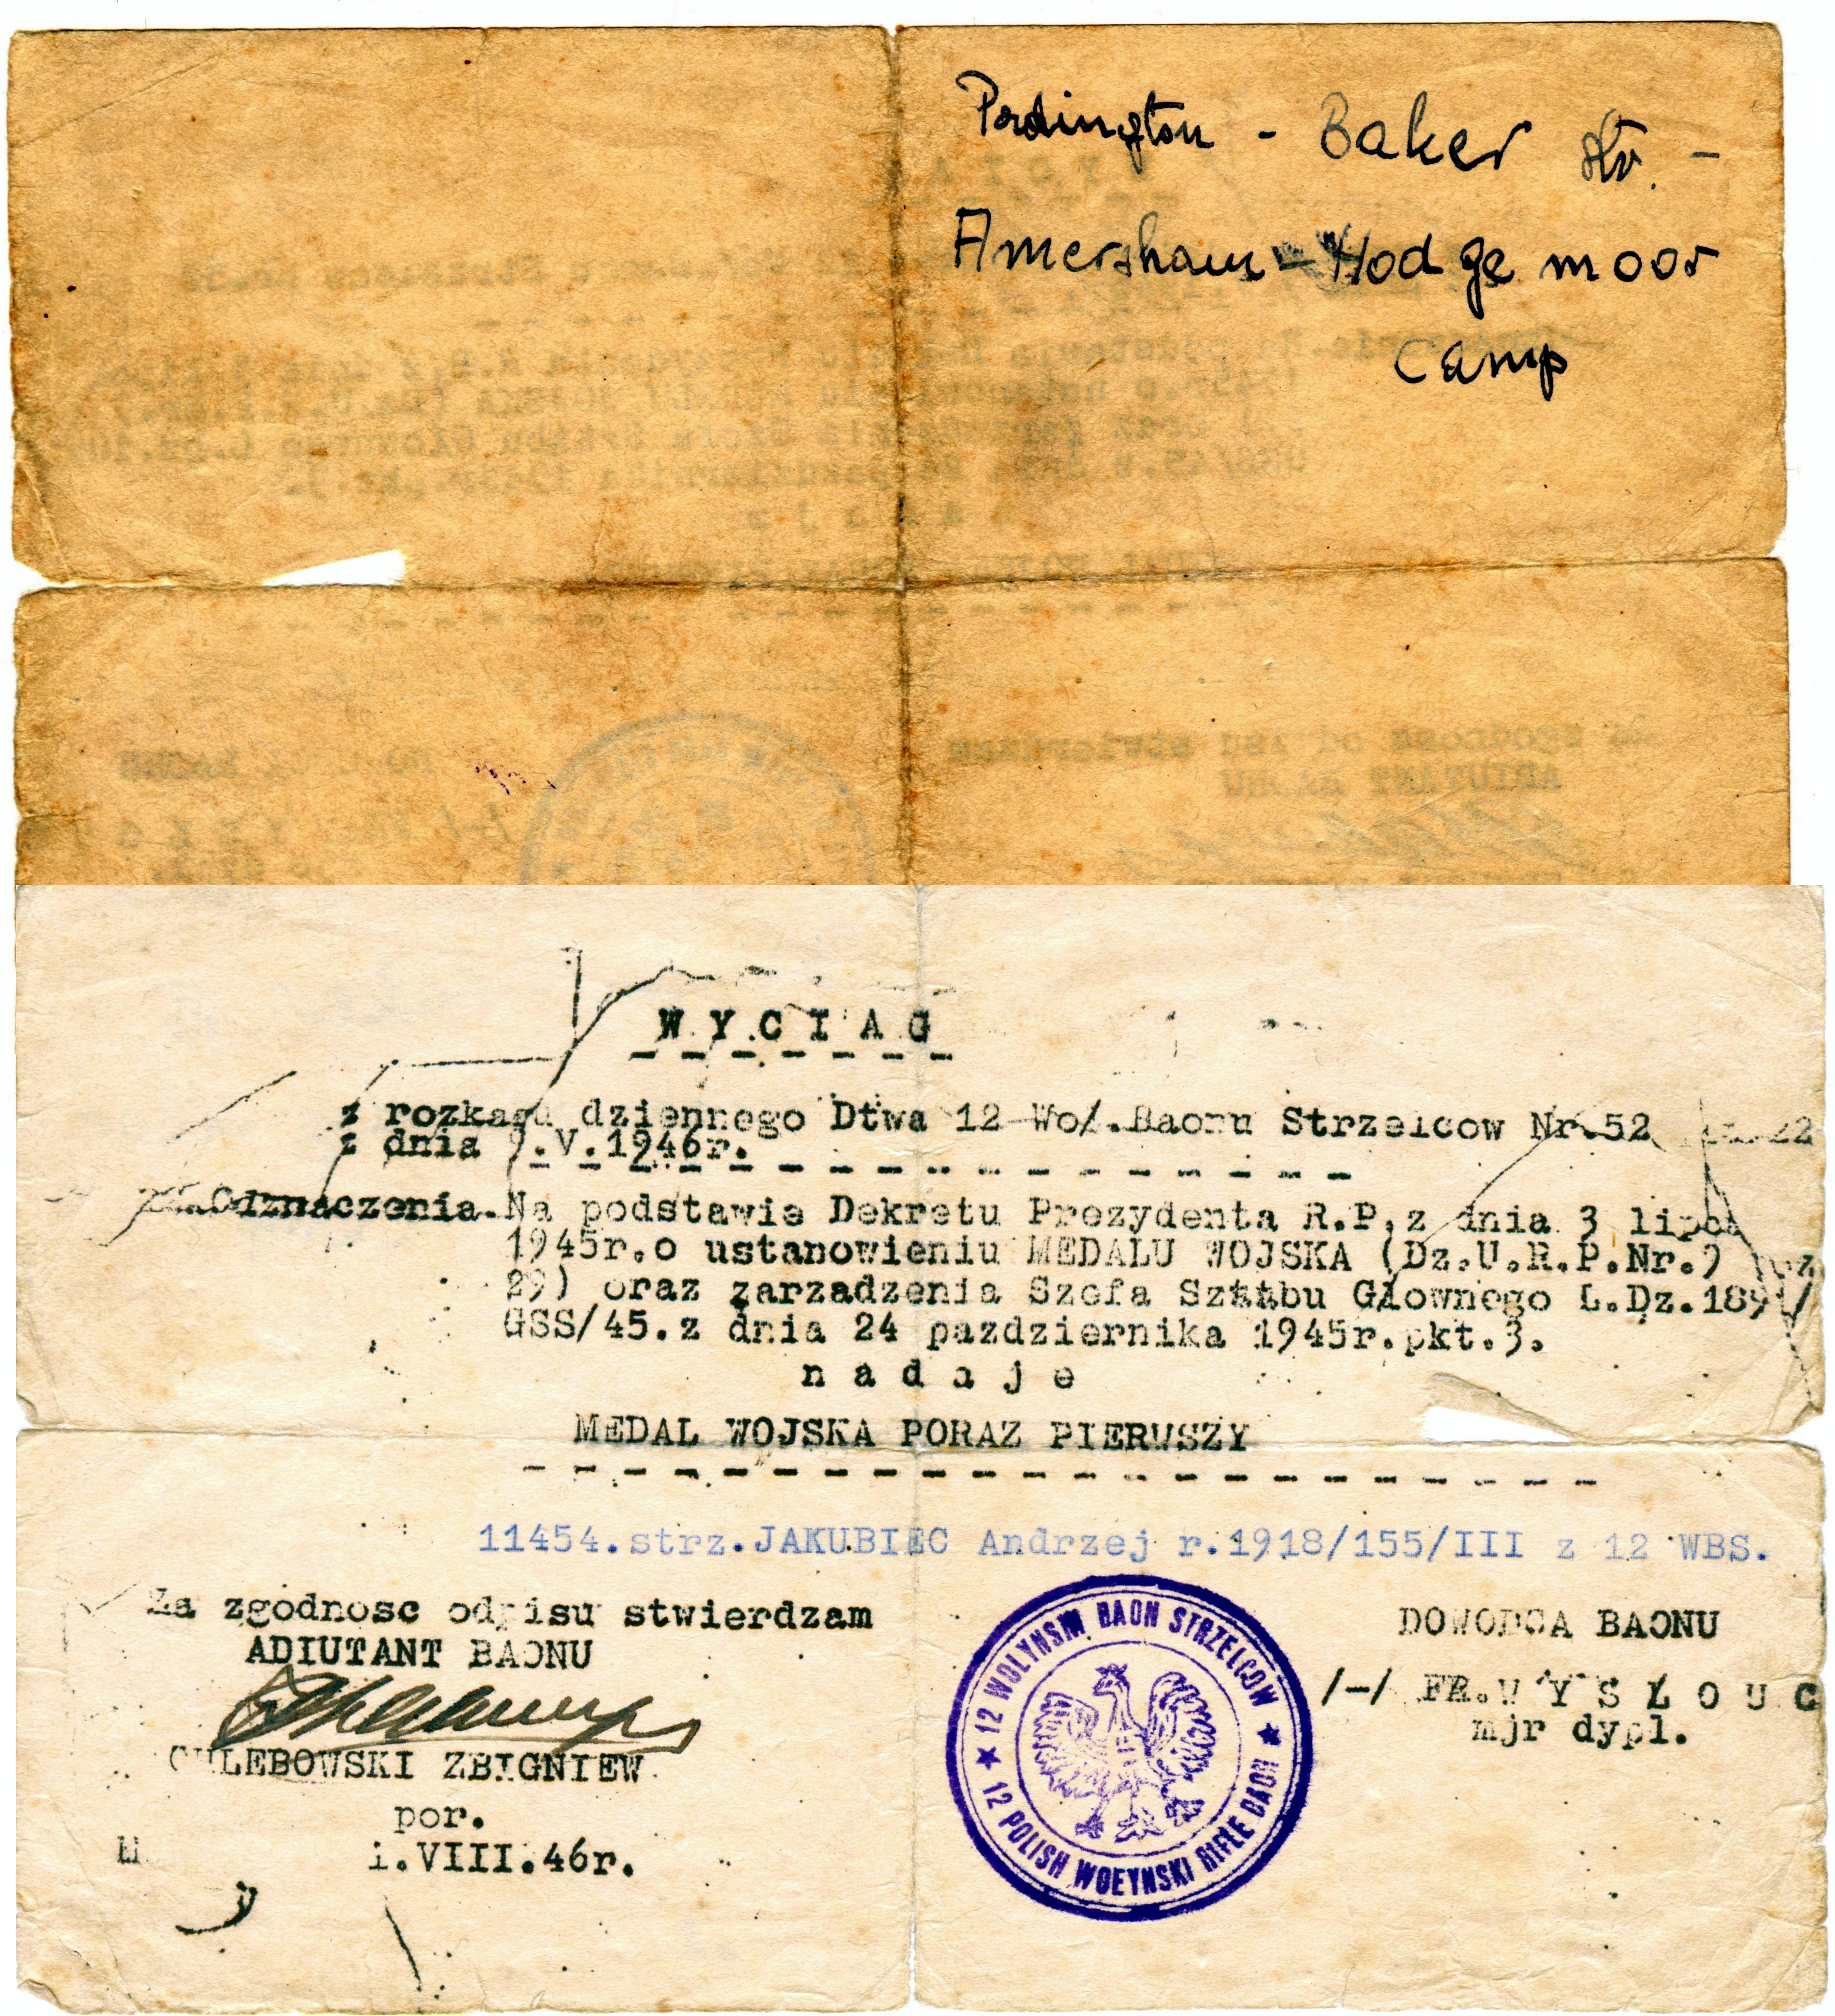 Pordington - Baker Str. -
Amersham - Hodgemoor
camp
W Y C I A G
z rozkazu dziennego Dtwa 12 Woł.Baonu Strzelcow Nr.52
z dnia 9.V.1946r.
Odznaczenia. Na podstawie Dekretu Prezydenta R.P, z dnia 3 lipca
1945r.o ustanowieniu MEDALU WOJSKA (Dz.U.R.P.Nr.9 poz
29) oraz zarzadzenia Szefa Sztabu Głownego L.Dz.1891/
GSS/45.z dnia 24 pazdziernika 1945r.pkt.3.
n a d a j e
MEDAL WOJSKA PORAZ PIERWSZY
11454.strz.JAKUBIEC Andrzej r.1918/155/III z 12 WBS.
Za zgodnosc odpisu stwierdzam
ADIUTANT BAONU
CHLEBOWSKI ZBIGNIEW
por.
1.VIII.46r.
★ 12 WOLYNSKI BAON STRZELCOW ★
12 POLISH WOLYNSKI RIFLE BAON
DOWODCA BAONU
/-/ FR.W Y S Ł O U C
mjr dypl.